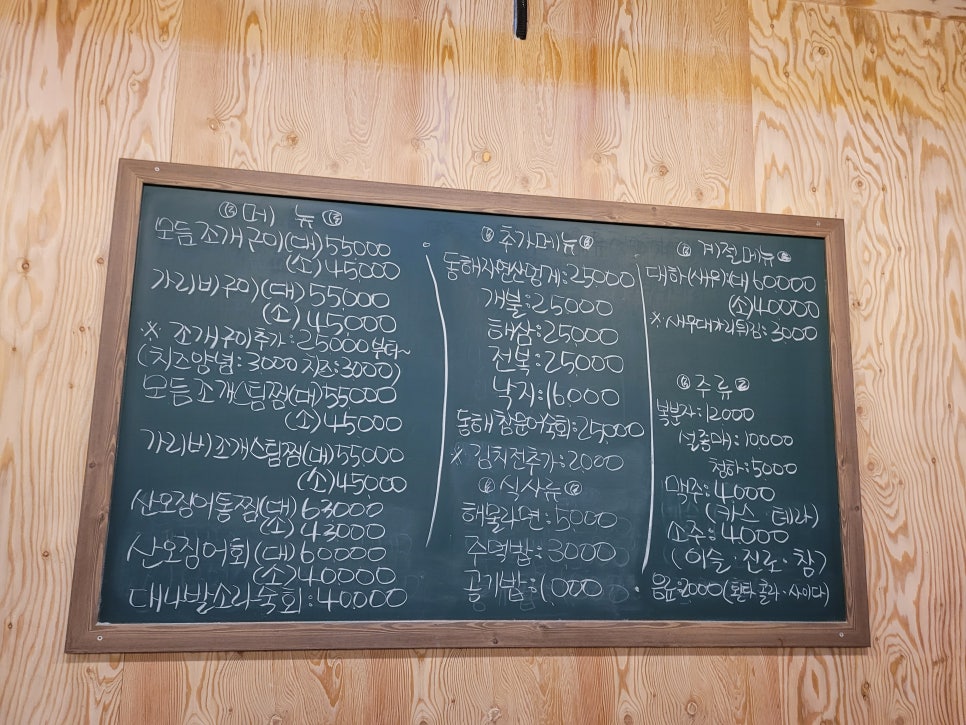 메 뉴
모듬조개구이(대)55000
(소)45000
가리비구이(대)55000
(소)45000
※ 조개구이추가:25000부터~
(치즈양념:3000 치즈:3000)
모듬조개스팀찜(대)55000
(소)45000
가리비조개스팀찜(대)55000
(소)45000
산오징어통찜(대)63000
(소)43000
산오징어회(대)60000
(소)40000
대나발소라숙회:40000
추가메뉴
동해자연산멍게:25000
개불:25000
해삼:25000
전복:25000
낙지:16000
동해참문어숙회:25000
※김치전추가:2000
식사류
해물라면:5000
주먹밥:3000
공기밥:1000
계절메뉴
대하(새우)(대)60000
(소)40000
※새우대가리튀김:3000
주류
복분자:12000
설중매:10000
청하:5000
맥주:4000
(카스 테라)
소주:4000
(이슬·진로·참)
음료:2000(환타·콜라·사이다)